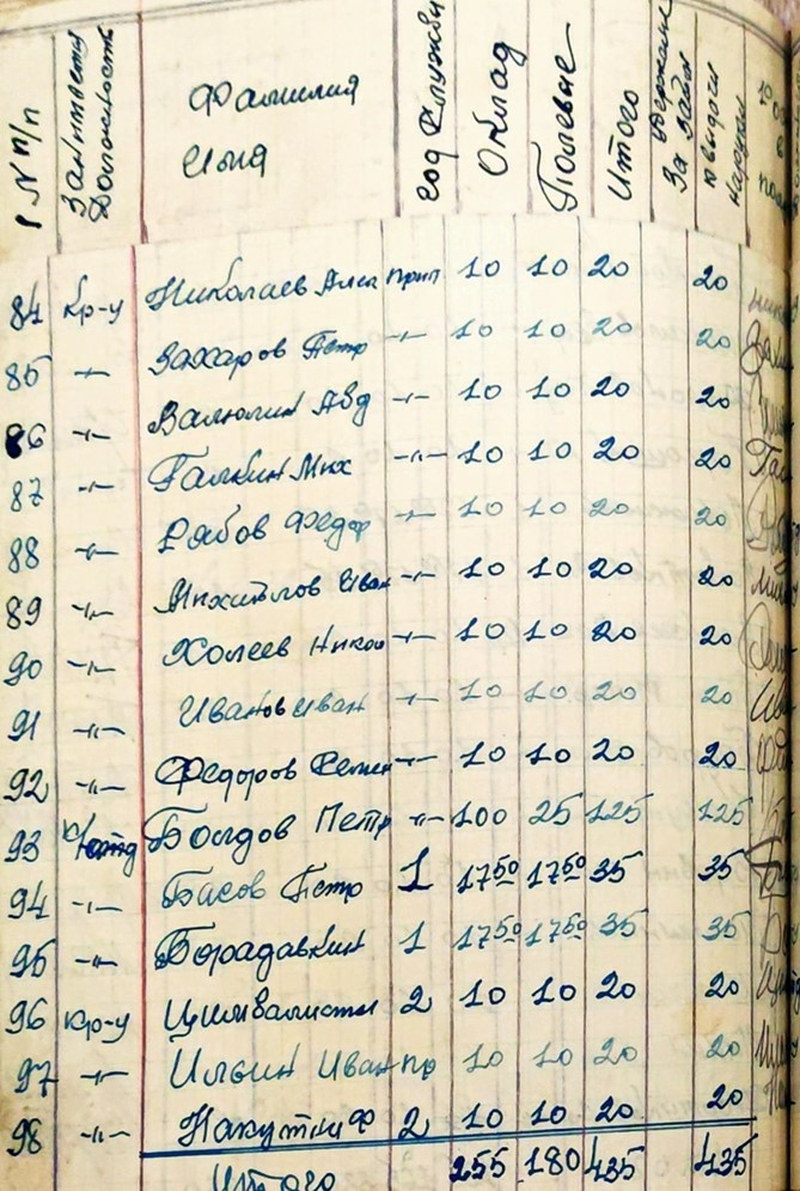 № п/п Занимаем Должность Фамилия Имя год Службы Оклад Полевые Итого За Займ к выдачи на руки
84 Кр-ц Николаев Алек прип 10 10 20 20
85 -"- Захаров Петр -"- 10 10 20 20
86 -"- Валюлин Авд -"- 10 10 20 20
87 -"- Галкин Мих -"- 10 10 20 20
88 -"- Рябов Федор -"- 10 10 20 20
89 -"- Михайлов Иван -"- 10 10 20 20
90 -"- Холеев Никол -"- 10 10 20 20
91 -"- Иванов Иван -"- 10 10 20 20
92 -"- Федоров Семен -"- 10 10 20 20
93 Болдов Петр -"- 100 25 125 125
94 -"- Басов Петр 1 17 50 17 50 35 35
95 -"- Борадавкин 1 17 50 17 50 35 35
96 Кр-ц 2 10 10 20 20
97 -"- Ильин Иван пр 10 10 20 20
98 -"- 2 10 10 20 20
Итого 255 180 435 435